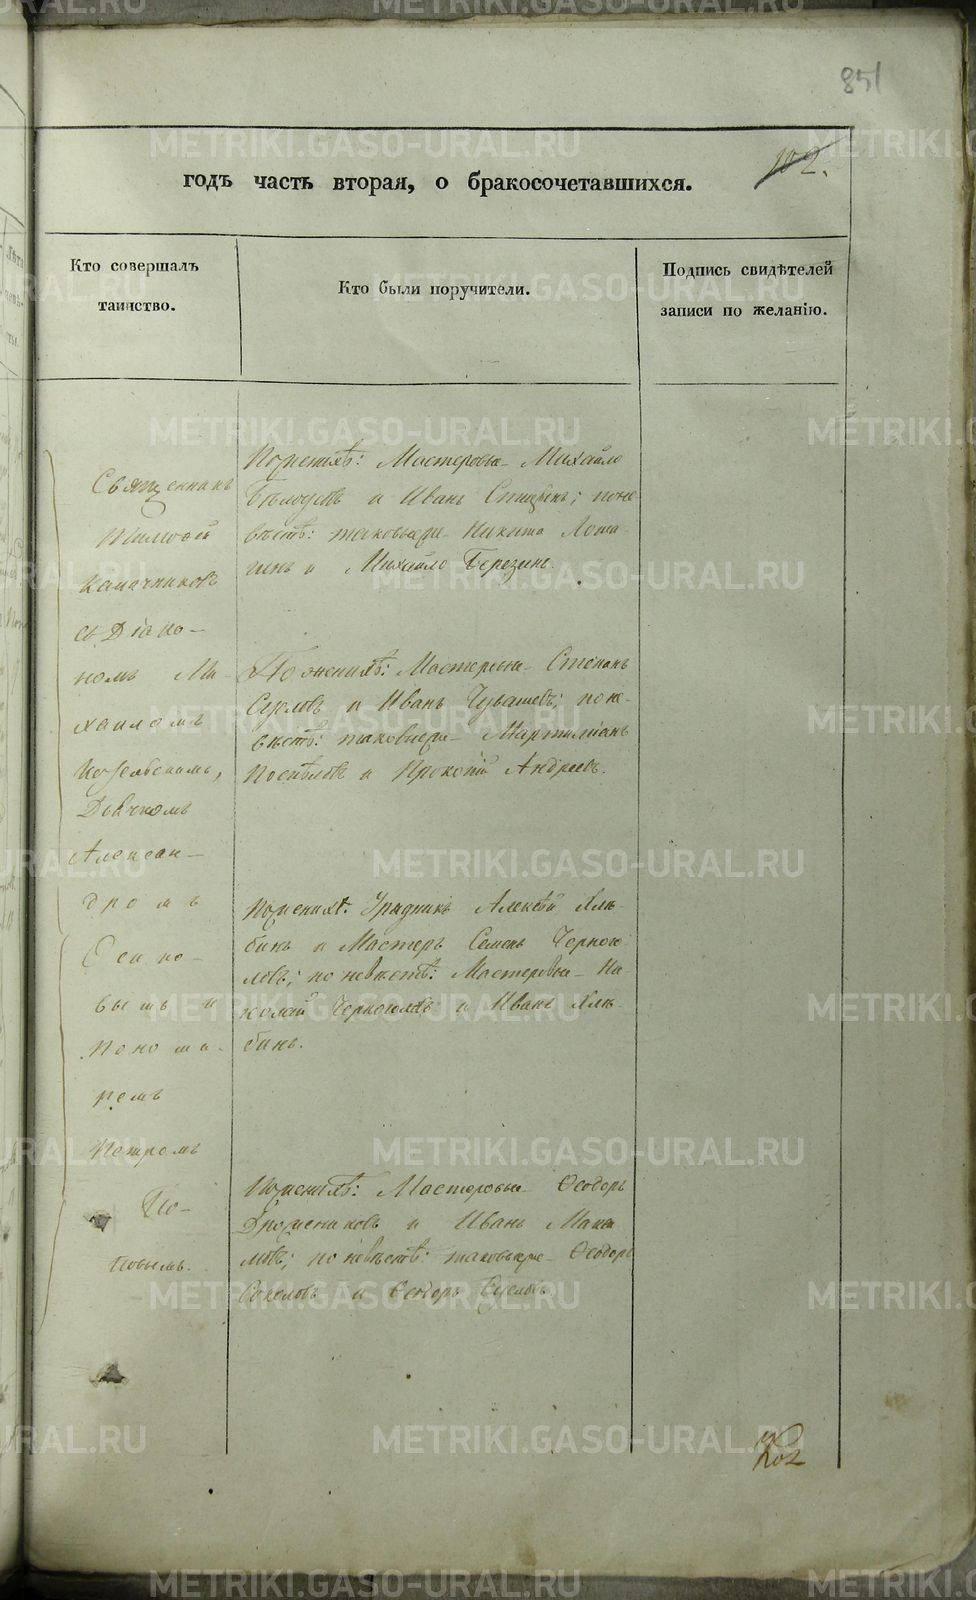 851
102.
годъ часть вторая, о бракосочетавшихся.
Кто совершалъ
таинство.
Кто были поручители.
Подпись свидѣтелей
записи по желанію.
Священникъ
Тимофей
Капачинсковъ
съ Діако-
номъ Ми-
хаиломъ
Дьячкомъ
Алексан-
дромъ
Осипо-
вымъ и
Понома-
ремъ
Петромъ
По-
повымъ.
Поженихѣ: Мастеровые Михайло
и Иванъ Спицынъ; поне
вѣстѣ: таковыеже Никита Лота
и Михайло Березинъ.
По женихѣ: Мастеровые Степанъ
Серловъ и Иванъ Чувашевъ; поне-
вѣстѣ: таковыеже
Поспѣловъ и Прокопій Андреевъ.
Поженихѣ: Урядникъ Алексѣй Ялы-
бинъ и Мастеръ Семенъ Черного
ловъ; по невѣстѣ: Мастеровые Ни-
колай и Иванъ Ялы-
бинъ.
Поженихѣ: Мастеровые Ѳеодоръ
и Иванъ Мака
ловъ; по невѣстѣ: таковыеже Ѳеодоръ
Соколовъ и Ѳеодоръ Сусловъ.
102
METRIKI.GASO-URAL.RU